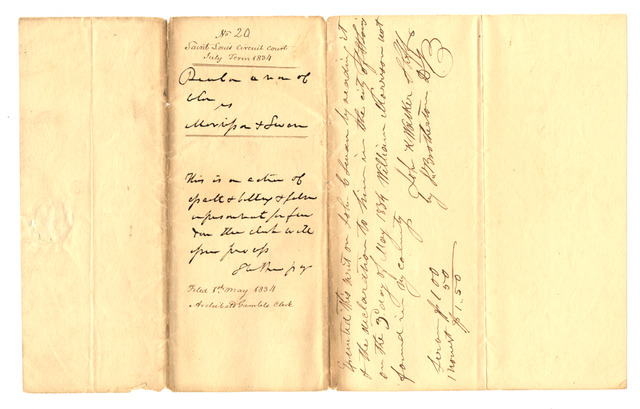 No 20
Saint Louis Circuit Court
July Term 1834
Reuben a man of
color
vs
Morrison & Swan
This is an action of
assault & battery & false
imprisonment
the clerk will
issue process
Filed 1st May 1834
Archibald Gamble Clerk
Executed this writ on John C Swan by reading it
& the declaration to him in the city of St Louis
on the 3d day of May 1834 William Morrison not
found in my county
John K Walker Shff
by L Brotherton DS
Serv $1 00
1 nonest 50
$1.50